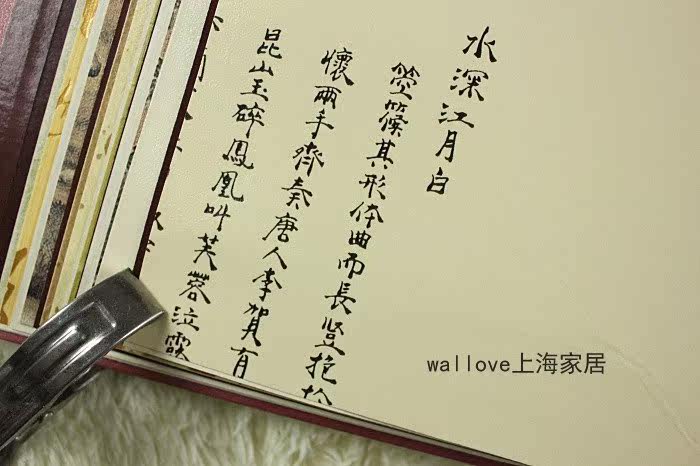 水深江月白
箜篌其形体曲而長豎抱於
懷兩手齊奏唐人李賀有
昆山玉碎鳳凰叫芙蓉泣露
wallove上海家居